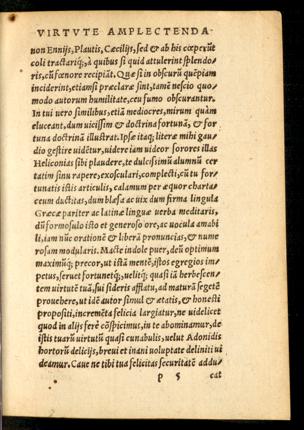 VIRTVTE AMPLECTENDA
non Ennijs, Plautis, Cæcilijs, sed & ab his cœperūt
coli tractariq;, à quibus si quid attulerint splendo-
ris, cū fœnore recipiāt. Quæ si in obscurū quēpiam
inciderint, etiamsi præclaræ sint, tamē nescio quo-
modo autorum humilitate, ceu fumo obscurantur.
In tui uero similibus, etiā mediocres, mirum quàm
eluceant, dum uicissim & doctrina fortunā, & for
tuna doctrinā illustrat. Ipsæ itaq; literæ mihi gau-
dio gestire uidētur, uidere iam uideor sorores illas
Heliconias sibi plaudere, te dulcissimū alumnū cer
tatim sinu rapere, exosculari, complecti, cū tu for-
tunatis istis articulis, calamum per æquor charta-
ceum ductitas, dum blæsa ac uix dum firma lingula
Græcæ pariter ac latinæ linguæ uerba meditaris,
dū formosulo isto et generoso ore, ac uocula amabi
li, iam nūc orationē & liberā pronuncias, & nume
rosam modularis. Macte indole puer, deū optimum
maximūq; precor, ut istā mentē, istos egregios im-
petus, seruet fortunetq;, uelitq; quasi iā herbescen-
tem uirtutē tuā, sui sideris afflatu, ad maturā segetē
prouehere, ut idē autor simul & ætatis, & honesti
propositi, incrementa felicia largiatur, ne uidelicet
quod in alijs ferè cōspicimus, in te abominamur, de
istis tuarū uirtutū quasi cunabulis, uelut Adonidis
hortorū delicijs, breui et inani uoluptate deliniti ui
deamur. Caue ne tibi tua felicitas securitatē addu-
p 5 cat